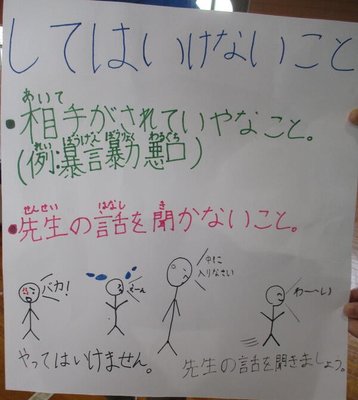 してはいけないこと
あいて
・相手がされていやなこと。
れい ぼうげんぼうりょくわるぐち
(例:暴言暴力悪口)
せんせい はなし き
・先生の話を聞かないこと。
バカ!
えーん
中に
入りなさい
わーい
やってはいけません。
先生の話を聞きましょう。